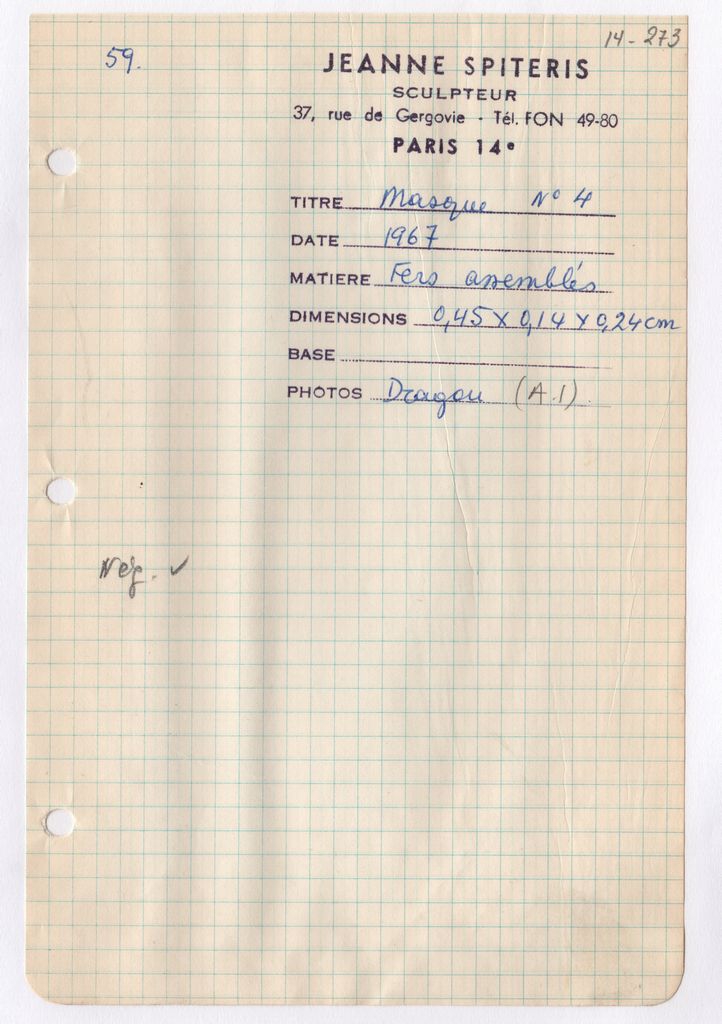 14 - 273
59.
JEANNE SPITERIS
SCULPTEUR
37, rue de Gergovie - Tél. FON 49-80
PARIS 14e
TITRE Masque N° 4
DATE 1967
MATIERE Fers assemblés
DIMENSIONS 0,45 X 0,14 X 0,24 cm
BASE
PHOTOS Dragou (A.1).
Nég. ✓